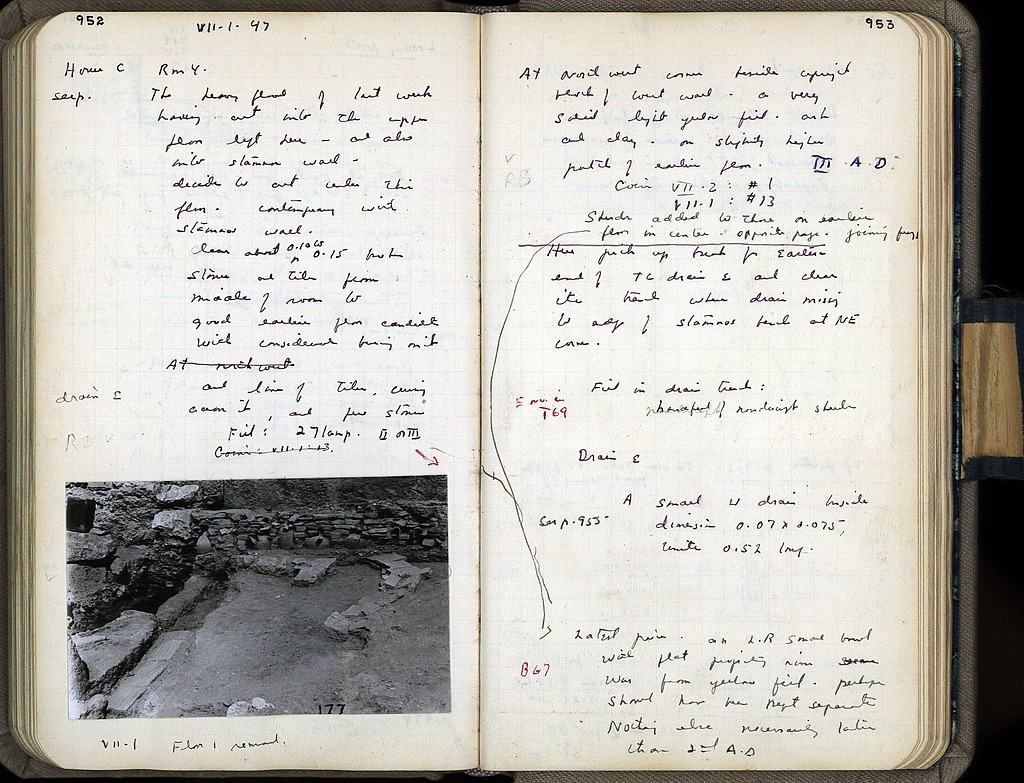 952
VII-1-47
House C Rm 4.
see p. The heavy flood of last week
having cut into the upper
floor left here – as also
into stamnos wall –
decide to cut under this
floor. contemporary with
stamnos wall.
clear about 0.10 to 0.15 both
stones and tiles from
middle of room to
good earlier floor
with considerable burning on it
At north west
and line of tiles, curving
across it, and few stones
drain E
Fill: 27 lamp. II or III
Coins: VII-1-13.
177
VII-1 Floor 1 removed.
953
At north west corner beside
stretch of west wall – a very
solid light yellow fill. ash
and clay. on slightly higher
patch of earlier floor. III A.D.
RB
Coin VII-2: #1
VII-1: #13
Sherds added to those on earlier
floor in center – opposite page. joining
Here pick up trench for Eastern
end of TC drain E and clear
its trench where drain missing
to edge of stamnos trench at NE
corner.
Fill in drain trench:
T69
handful of nondescript sherds
Drain E
A small TC drain inside
see p. 955 dimension 0.07 x 0.075,
0.52 long.
Latest piece. an L.R small bowl
with flat projecting rim
B67
was from yellow fill. perhaps
should have been kept separate
Nothing else necessarily later
than 2nd A.D